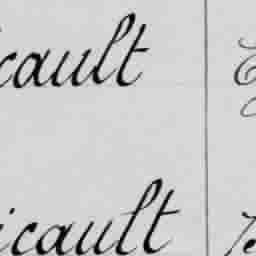 cault
icault